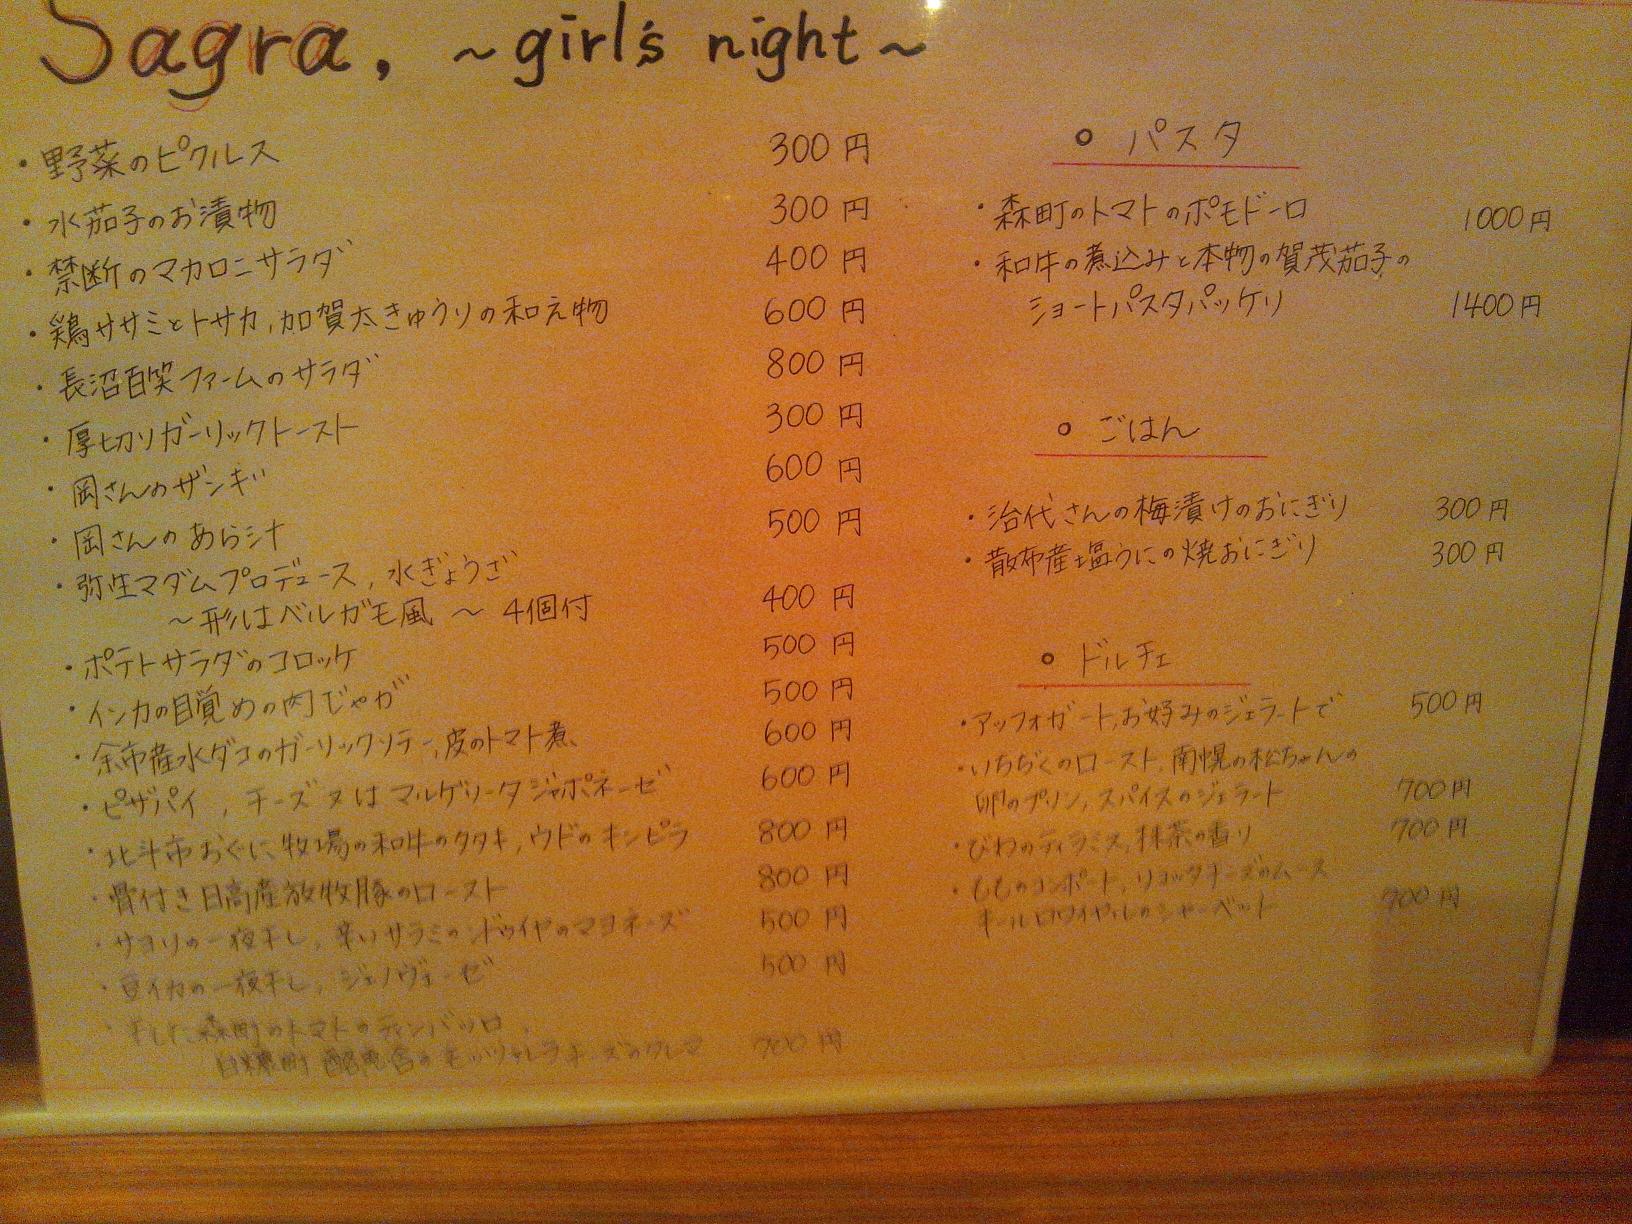 Sagra, ～girl's night～
・野菜のピクルス 300円
・水茄子のお漬物 300円
・禁断のマカロニサラダ 400円
・鶏ササミとトサカ,加賀太きゅうりの和え物 600円
・長沼百笑ファームのサラダ 800円
・厚切りガーリックトースト 300円
・岡さんのザンギ 600円
・岡さんのあら汁 500円
・弥生マダムプロデュース,水ぎょうざ
～形はベルガモ風～ 4個付 400円
・ポテトサラダのコロッケ 500円
・インカの目覚めの肉じゃが 500円
・余市産水ダコのガーリックソテー,皮のトマト煮 600円
・ピザパイ,チーズ又はマルゲリータジャポネーゼ 600円
・北斗市おぐに牧場の和牛のタタキ,ウドのキンピラ 800円
・骨付き日高産放牧豚のロースト 800円
・サヨリの一夜干し,辛いサラミのンドゥイヤのマヨネーズ 500円
・豆イカの一夜干し,ジェノヴェーゼ 500円
・干した森町のトマトのティンバッロ,
白糠町 酪恵舎のモッツァレラチーズのクレマ 700円
○ パスタ
・森町のトマトのポモドーロ 1000円
・和牛の煮込みと本物の賀茂茄子の
ショートパスタパッケリ 1400円
○ ごはん
・治代さんの梅漬けのおにぎり 300円
・散布産塩うにの焼おにぎり 300円
○ ドルチェ
・アッフォガート,お好みのジェラートで 500円
・いちぢくのロースト,南幌の松ちゃんの
卵のプリン,スパイスのジェラート 700円
・びわのティラミス,抹茶の香り 700円
・もものコンポート,リコッタチーズのムース
キールロワイヤルのシャーベット 700円